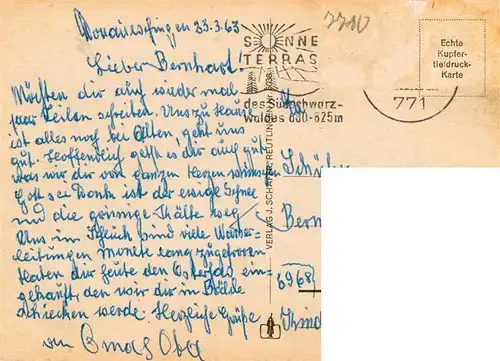 Donaueschingen 23.3.63
7710
Lieber Bernhard!
Müssten dir auch wieder mal
paar Zeilen schreiben. Uns zu Hause
ist alles noch bei Alten, geht uns
gut. Hoffentlich geht es dir auch gut
was wir dir von ganzen Herzen wünschen
Gott sei Dank ist der ewige Schnee
und die grausige Kälte weg
Uns im sind viele Wasser-
leitungen Monate lang zugefroren
Haben dir heute den Osterhas ein-
gekauft, den wir dir in Bälde
schicken werde. Herzliche Grüße
von Omas Opa
SONNE
TERRAS
des Südschwarz-
waldes 600-825m
771
Echte
Kupfer-
tiefdruck-
Karte
Schüler
Bern
6968
VERLAG J. SCHÄFER, REUTLINGEN